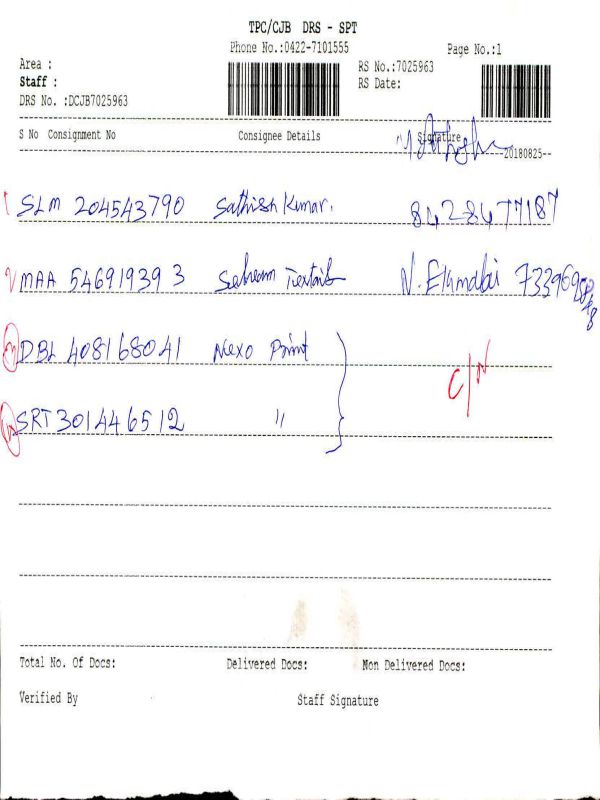 TPC/CJB DRS - SPT
Phone No.:0422-7101555
Page No.:1
Area :
RS No.:7025963
Staff :
RS Date:
DRS No. :DCJB7025963
S No Consignment No Consignee Details Signature
20180825
1 SLM 204543790 Sathish Kumar. 8428477187
2 MAA 546919393 N. Elamalai
3 DBL 408168041 Nexo Point C/N
SRT 301446512 "
Total No. Of Docs: Delivered Docs: Non Delivered Docs:
Verified By Staff Signature